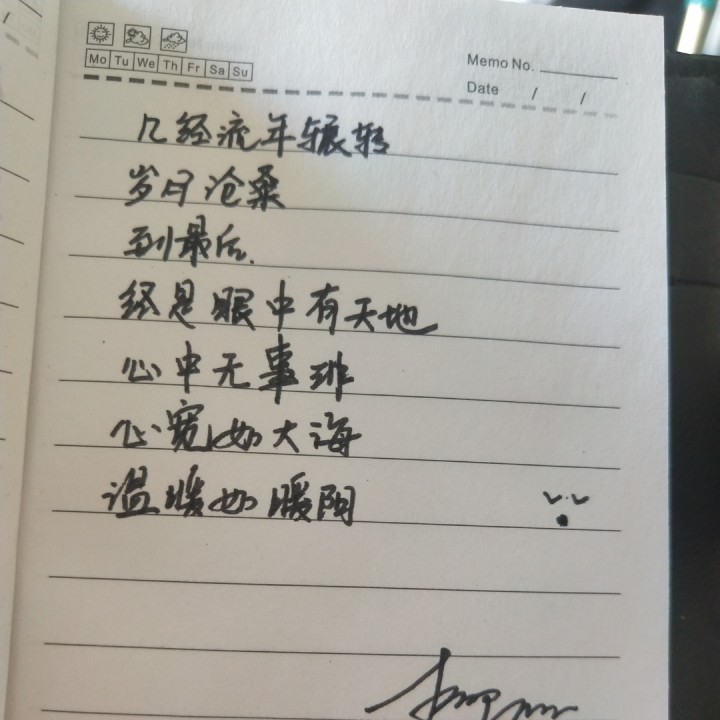 Mo Tu We Th Fr Sa Su
Memo No.
Date / /
几经流年辗转
岁月沧桑
到最后.
终是眼中有天地
心中无事非
心宽如大海
温暖如暖阳